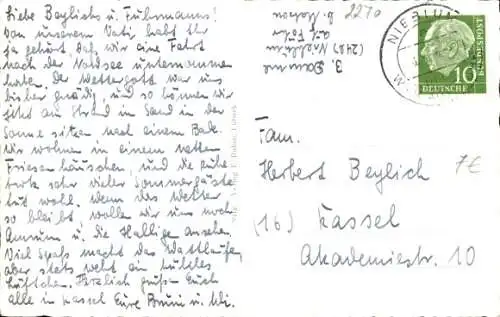 Liebe Beylichs u. Fuhrmanns!
Von unserem Vati habt Ihr
ja gehört, daß wir eine Fahrt
nach der Nordsee unternommen
haben. Der Wettergott war uns
bisher gnädig, und so können wir
jetzt am Strand im Sand in der
Sonne sitzen nach einem Bade.
Wir wohnen in einem netten
Friesenhäuschen, und die Ruhe
tut sehr vieler Sommergäste
tut wohl. Wenn das Wetter
so bleibt, wollen wir uns noch
Amrum u. die Halligen ansehen.
Viel Spaß macht das Wattlaufen,
aber stets weht ein kühles
Lüftchen. Herzlich grüßen Euch
alle in Kassel Eure
2270
NIEBLUM
10
DEUTSCHE
BUNDESPOST
Fam.
Herbert Beylich
7€
(16) Kassel
Akademiestr. 10